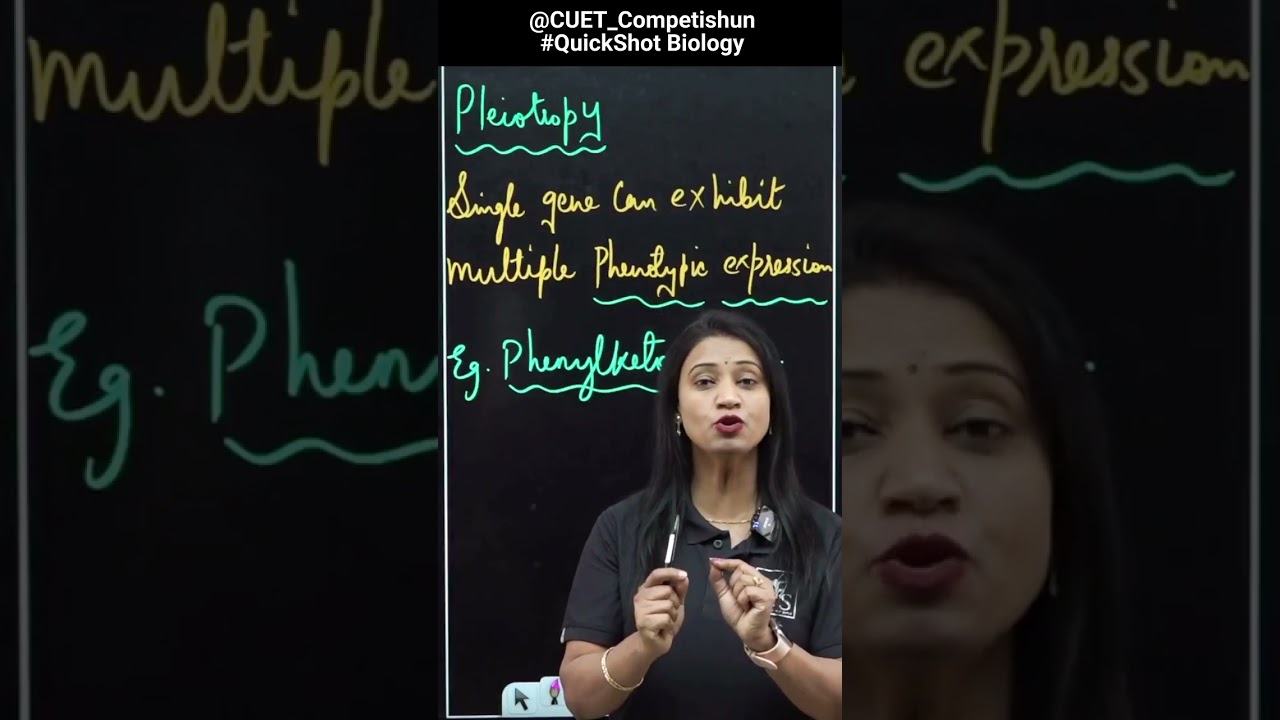 @CUET_Competishun
#QuickShot Biology
Pleiotropy
Single gene can exhibit
multiple Phenotypic expression
Eg. Phenylket